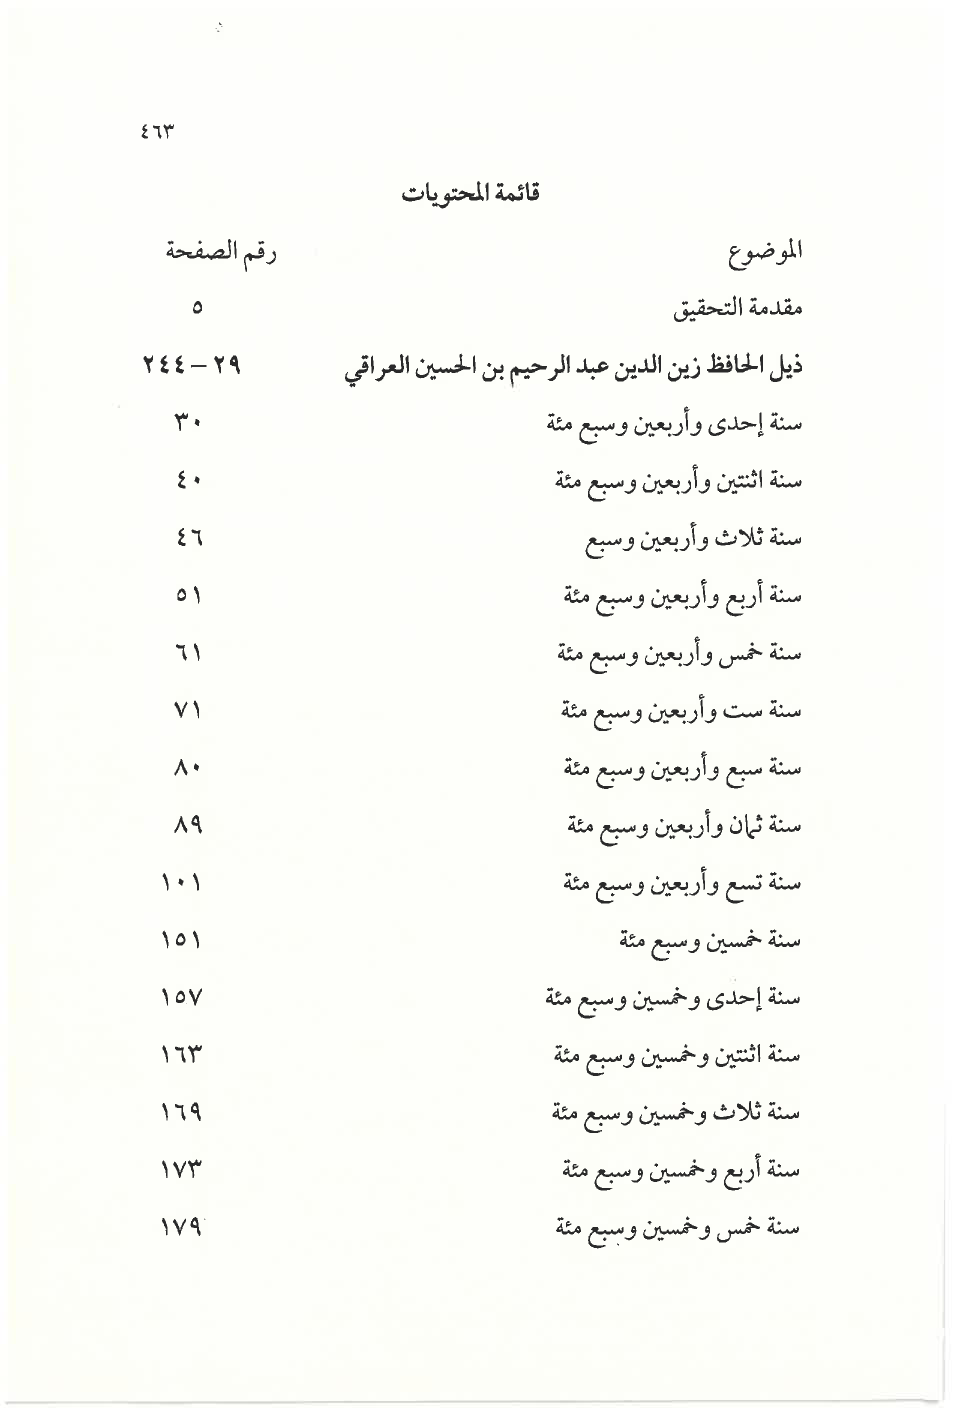 ٤٦٣
قائمة المحتويات
الموضوع رقم الصفحة
مقدمة التحقيق ٥
ذيل الحافظ زين الدين عبد الرحيم بن الحسين العراقي ٢٩ – ٢٤٤
سنة إحدى وأربعين وسبع مئة ٣٠
سنة اثنتين وأربعين وسبع مئة ٤٠
سنة ثلاث وأربعين وسبع ٤٦
سنة أربع وأربعين وسبع مئة ٥١
سنة خمس وأربعين وسبع مئة ٦١
سنة ست وأربعين وسبع مئة ٧١
سنة سبع وأربعين وسبع مئة ٨٠
سنة ثمان وأربعين وسبع مئة ٨٩
سنة تسع وأربعين وسبع مئة ١٠١
سنة خمسين وسبع مئة ١٥١
سنة إحدى وخمسين وسبع مئة ١٥٧
سنة اثنتين وخمسين وسبع مئة ١٦٣
سنة ثلاث وخمسين وسبع مئة ١٦٩
سنة أربع وخمسين وسبع مئة ١٧٣
سنة خمس وخمسين وسبع مئة ١٧٩